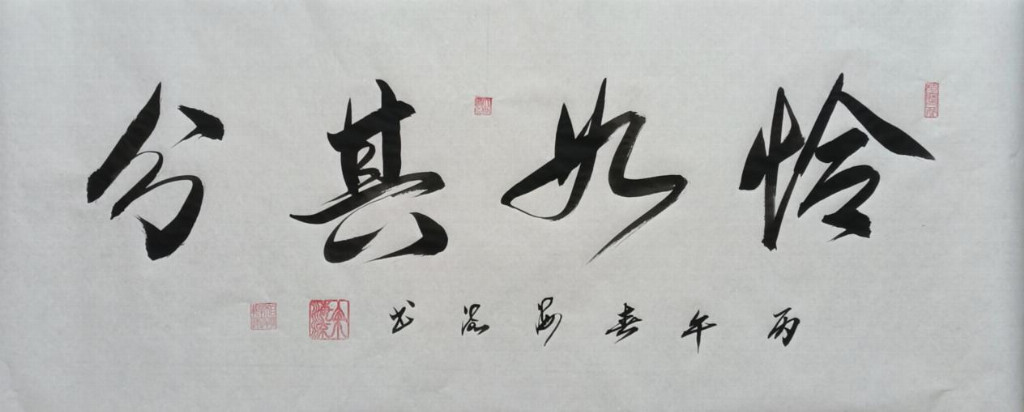 恰如其分
丙午春海源书